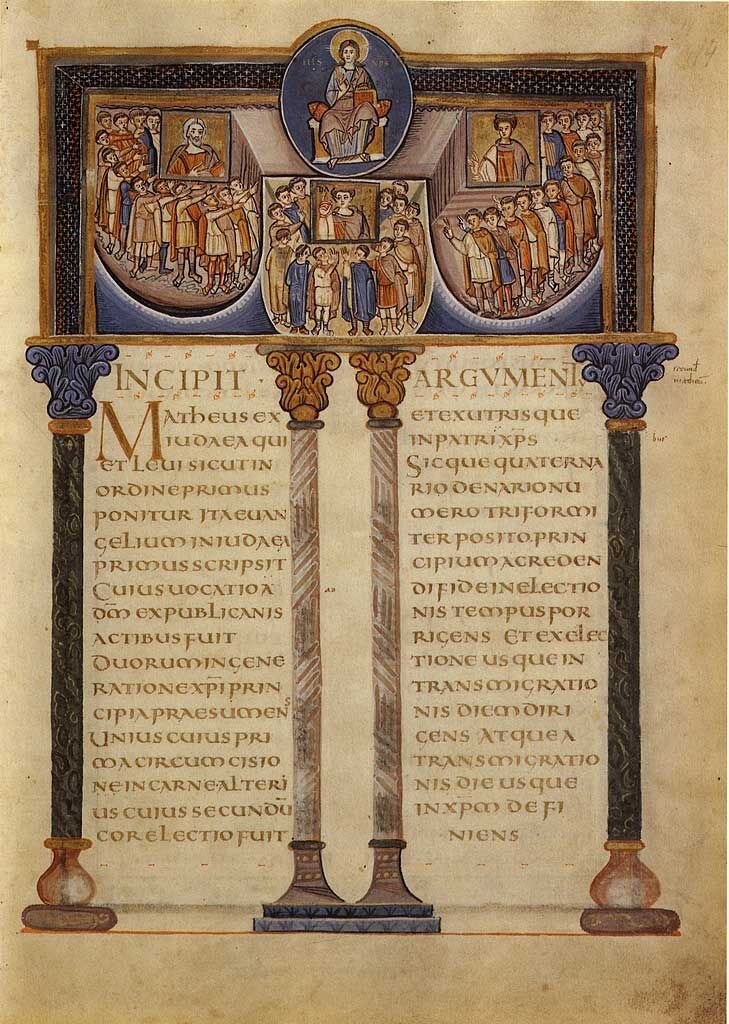 IHS XPS
DA
INCIPIT ARGVMENT
MATHEUS EX
IUDAEA QUI
ET LEUI SICUT IN
ORDINE PRIMUS
PONITUR ITA EUAN
GELIUM IN IUDAEA
PRIMUS SCRIPSIT
CUIUS UOCATIO A
DM̅ EX PUBLICANIS
ACTIBUS FUIT
DUORUM IN GENE
RATIONE XP̅I PRIN
CIPIA PRAESUMENS
UNIUS CUIUS PRI
MA CIRCUMCISIO
NE IN CARNE ALTERI
US CUIUS SECUNDU̅
COR ELECTIO FUIT
ET EX UTRISQUE
IN PATRI XP̅S
SICQUE QUATERNA
RIO DENARIO NU
MERO TRIFORMI
TER POSITO PRIN
CIPIUM A CREDEN
DI FIDE IN ELECTIO
NIS TEMPUS POR
RIGENS ET EX ELEC
TIONE USQUE IN
TRANSMIGRATIO
NIS DIEM DIRI
GENS ATQUE A
TRANSMIGRATIO
NIS DIE USQUE
IN XP̅M DEFI
NIENS